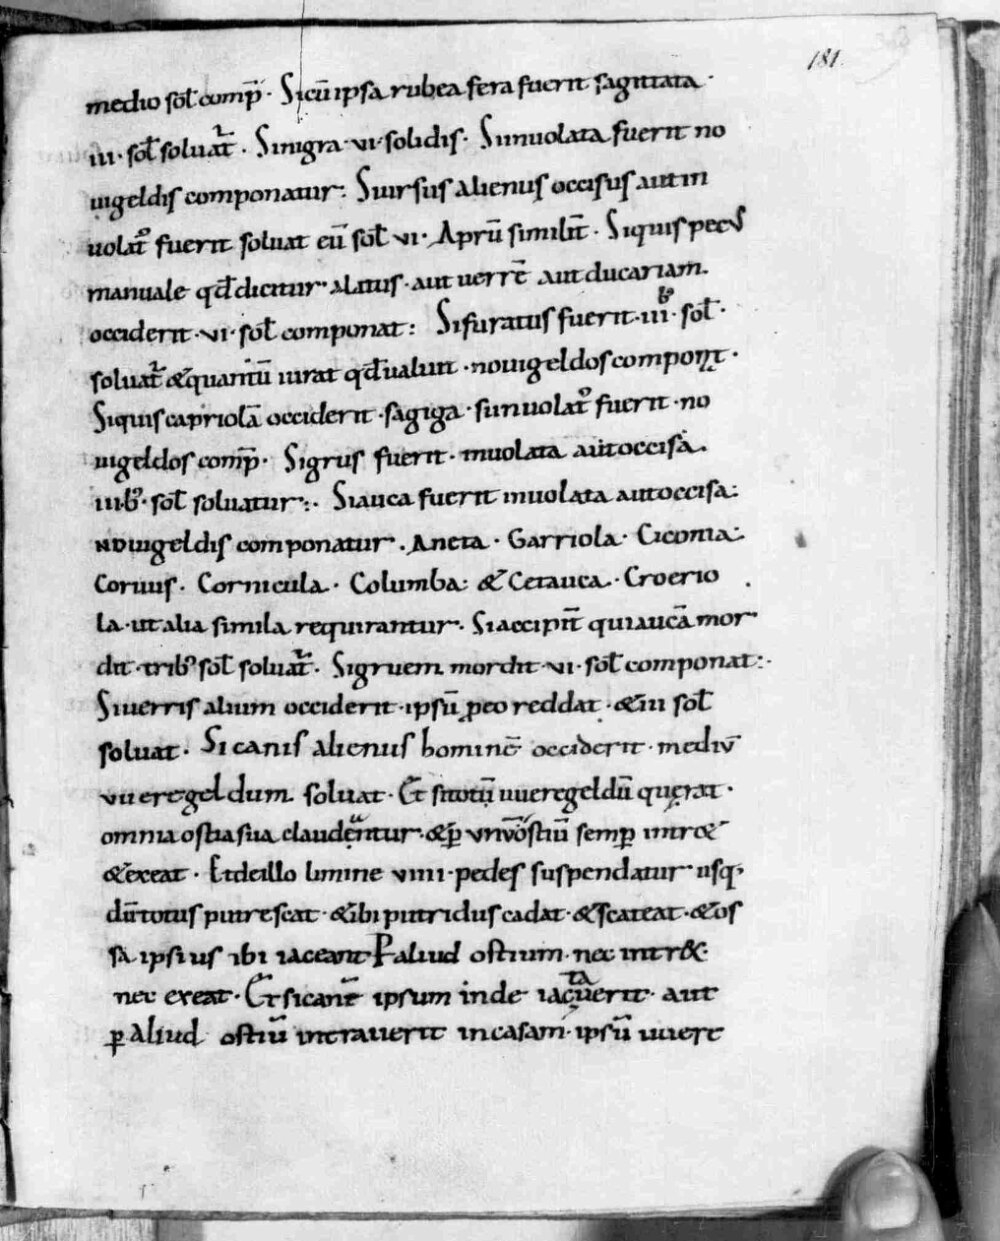 181.
medio sol comp̄. Sicū ipsa rubea fera fuerit sagittata.
iii. sol soluat̄. Si nigra. vi. solidis. Si inuolata fuerit no
uigeldis componatur: Si ursus alienus occisus aut in
uolat᷒ fuerit soluat eū sol vi. Aprū similit̄. Siquis pecus
manuale qđ dicitur alatus. aut uerrē aut ducariam.
occiderit. vi. sol componat: Si furatus fuerit. iii. sol.
soluat̄ & quantū iurat qđ ualuit. nouigeldos componat.
Siquis capriolā occiderit. sagiga. si inuolat᷒ fuerit. no
uigeldos comp̄. Si grus fuerit. inuolata aut occisa.
iii.b᷒. sol soluatur:. Si auca fuerit inuolata aut occisa:
nouigeldis componatur. Aneta. Garriola. Ciconia:
Coruus. Cornicula. Columba: & Cetauca. Croerio
la. ut alia simila requirantur. Si accipit̄ qui aucā mor
dit. trib᷒ sol soluat̄. Si gruem mordit. vi. sol componat:.
Si uerris aliūm occiderit. ipsū ꝓ eo reddat. & iii sol
soluat. Si canis alienus hominē occiderit. mediū
uueregeldum soluat. Et si totū uueregeldū quęrat.
omnia ostia sua claudantur. & ꝑ unū ostiū semꝑ intr&
& exeat. Et de illo limine viiii. pedes suspendatur usq᷒
dū totus putrescat. & ibi putridus cadat. & scateat. & os
sa ipsius ibi iaceant P aliud ostium. nec intr&.
nec exeat. Et si canē ipsum inde iactauerit. aut
ꝑ aliud ostiū intrauerit in casam. ipsū uuere